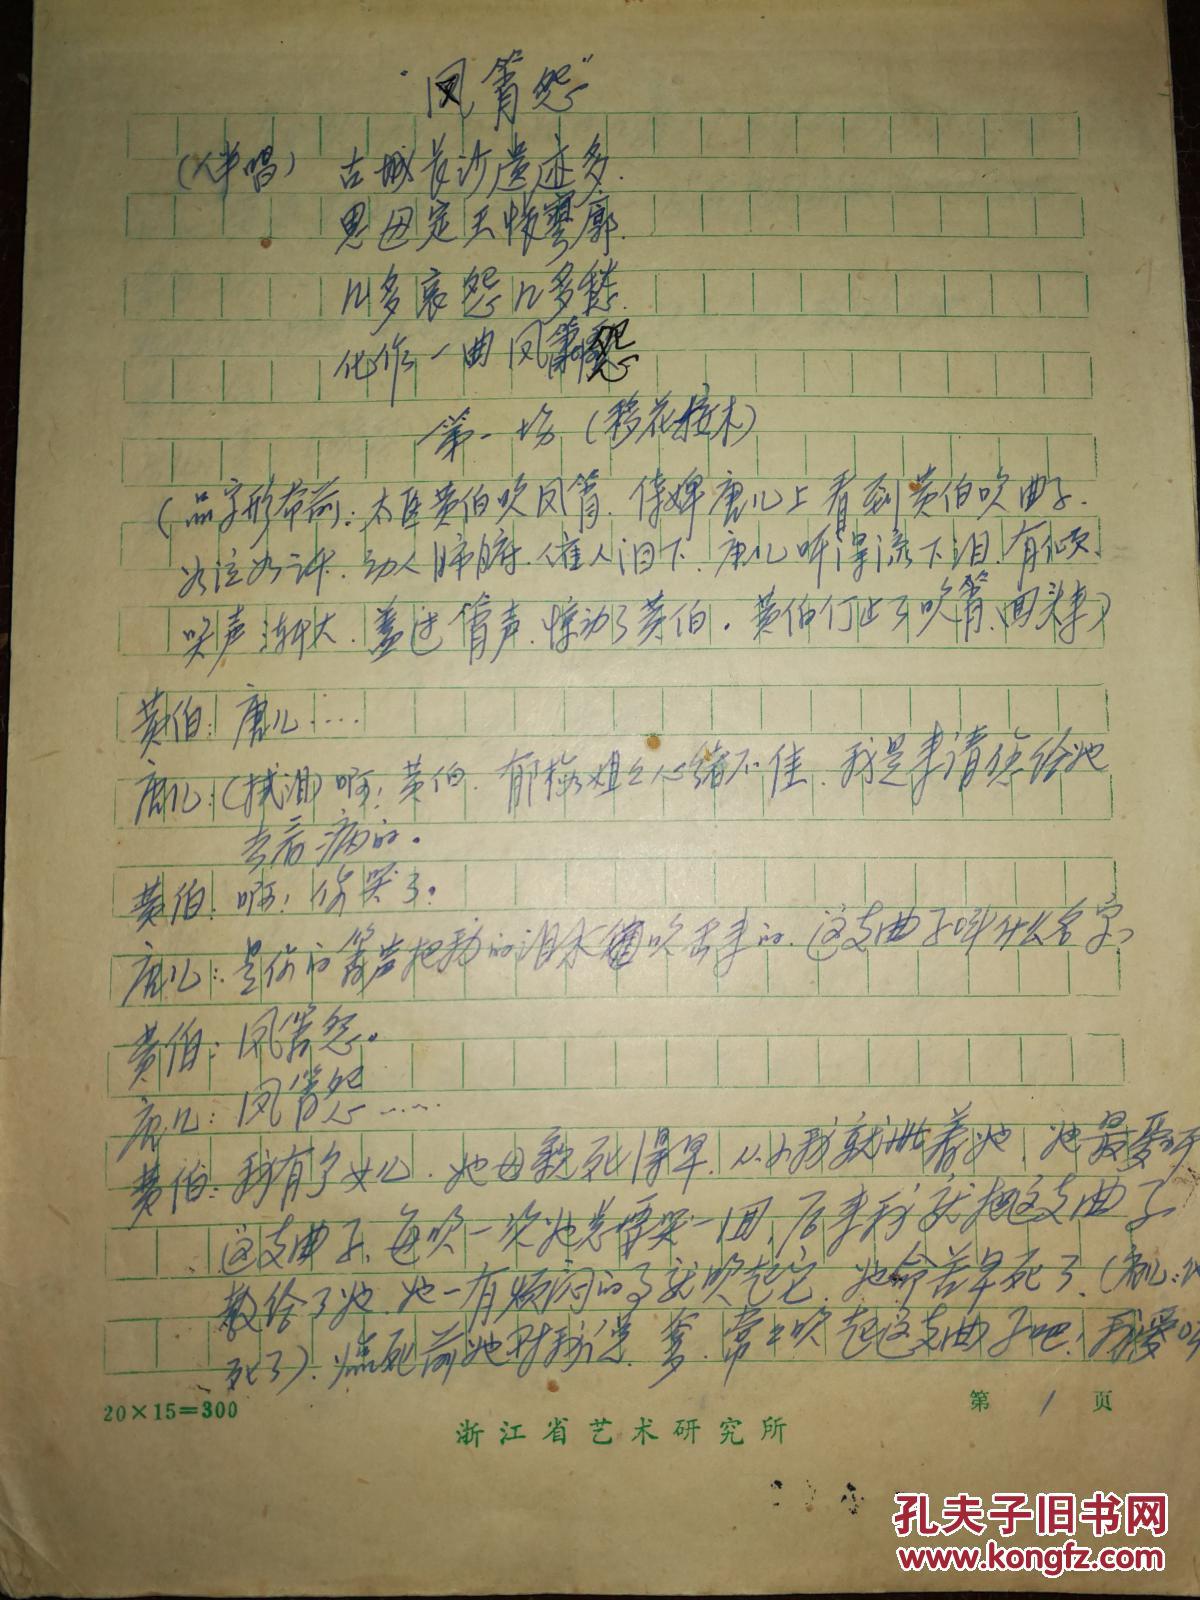 “凤箫怨”
(伴唱) 古城长沙遗迹多.
思母定王恨寥廓.
几多哀怨几多愁.
化作一曲凤箫怨
第一场 (移花接木)
(品字形布前: 太医黄伯吹凤箫. 侍婢唐儿上看到黄伯吹曲子.
如泣如诉. 动人肺腑. 催人泪下. 唐儿听得流下泪. 有顷.
哭声渐大. 盖过箫声. 惊动了黄伯. 黄伯停止了吹箫. 回头来)
黄伯: 唐儿....
唐儿: (拭泪) 啊! 黄伯. 郁极姐姐心绪不佳. 我是来请您给她
去看病的.
黄伯: 啊! 你哭了.
唐儿: 是你的箫声把我的泪水吹出来的. 这支曲子叫什么名字.
黄伯: 凤箫怨.
唐儿: 凤箫怨......
黄伯: 我有个女儿. 她母亲死得早. 从小我就带着她. 她最爱听
这支曲子. 每吹一次她总要哭一回. 后来我就把这支曲子
教给了她. 她一有烦闷的事就吹起它. 她命苦早死了. (唐儿:
死了). 临死前她对我说. 爹. 常常吹起这支曲子吧! 我爱听
20×15=300
第 1 页
浙江省艺术研究所
孔夫子旧书网
www.kongfz.com